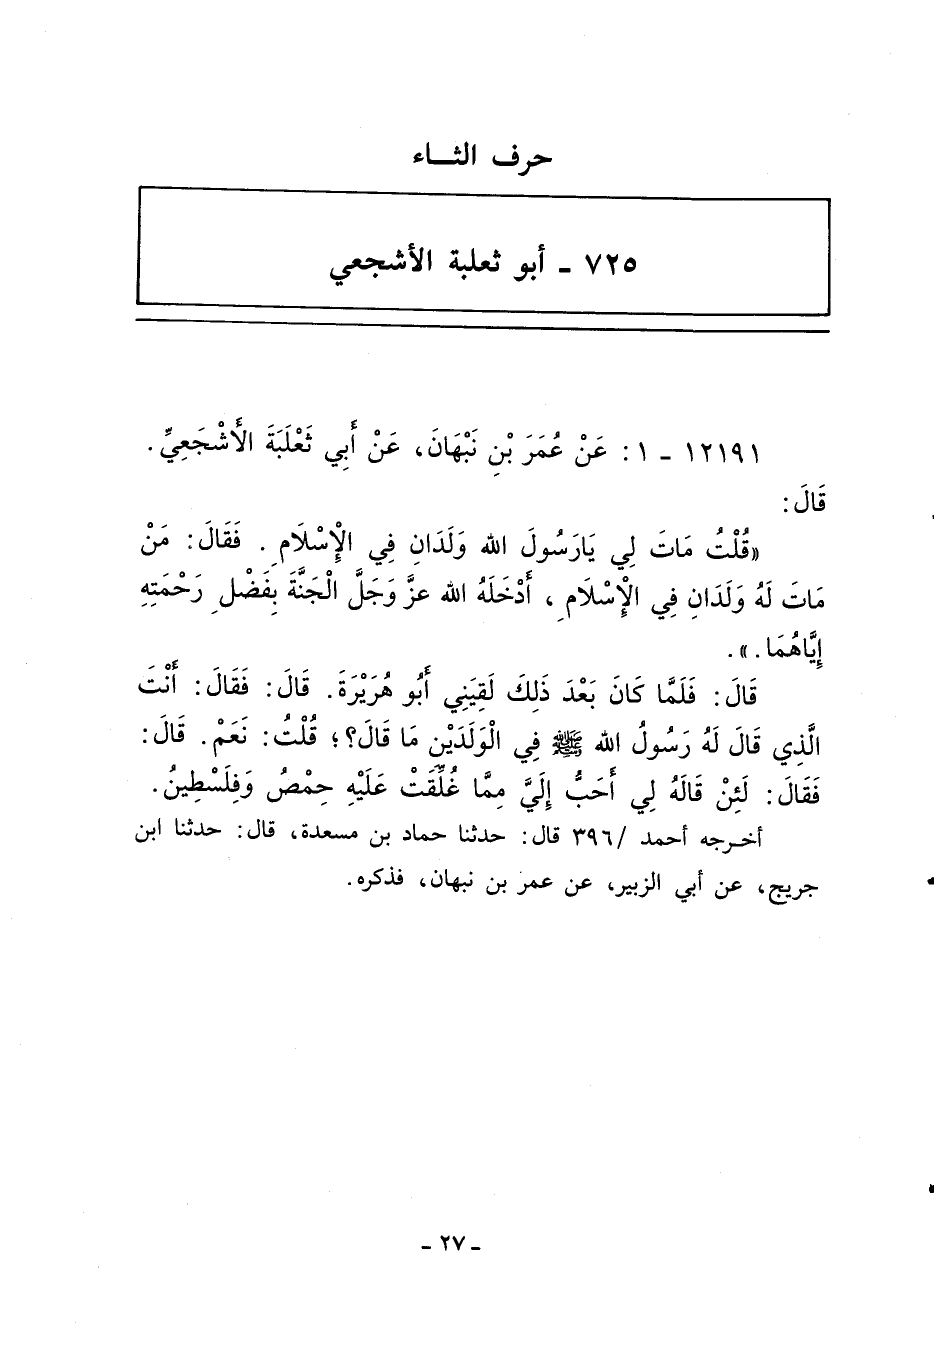 حرف الثـــاء
٧٢٥ - أبو ثعلبة الأشجعي
١٢١٩١ - ١ : عَنْ عُمَرَ بْنِ نَبْهَانَ، عَنْ أَبِي ثَعْلَبَةَ الْأَشْجَعِيِّ .
قَالَ:
«قُلْتُ مَاتَ لِي يَارَسُولَ الله وَلَدَانِ فِي الْإِسْلَامِ . فَقَالَ: مَنْ
مَاتَ لَهُ وَلَدَانِ فِي الْإِسْلَامِ ، أَدْخَلَهُ الله عزَّ وَجَلَّ الْجَنَّةَ بِفَضْلِ رَحْمَتِهِ
إِيَّاهُمَا . » .
قَالَ: فَلَمَّا كَانَ بَعْدَ ذَلِكَ لَقِيَنِي أَبُو هُرَيْرَةَ. قَالَ: فَقَالَ: أَنْتَ
الَّذِي قَالَ لَهُ رَسُولُ الله ﷺ فِي الْوَلَدَيْنِ مَا قَالَ؟؛ قُلْتُ: نَعَمْ. قَالَ:
فَقَالَ: لَئِنْ قَالَهُ لِي أَحَبُّ إِلَيَّ مِمَّا غُلِّقَتْ عَلَيْهِ حِمْصُ وَفِلَسْطِينُ.
أخـرجه أحمد /٣٩٦ قال: حدثنا حماد بن مسعدة، قال: حدثنا ابن
جريج، عن أبي الزبير، عن عمر بن نبهان، فذكره.
- ٢٧ -